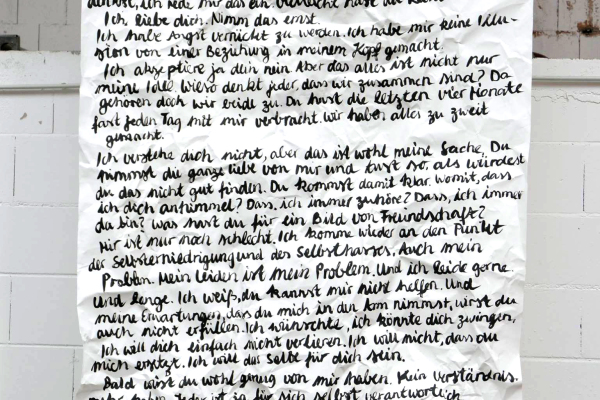 ich rede mir das ein vielleicht hast du Recht
Ich liebe dich. Nimm das ernst.
Ich habe Angst vernicht zu werden. Ich habe mir keine Illu-
sion von einer Beziehung in meinem Kopf gemacht.
Ich akzeptiere ja dein nein. Aber das alles ist nicht nur
meine Idee. Wieso denkt jeder, dass wir zusammen sind? Da
gehören doch wir beide zu. Du hast die letzten vier Monate
fast jeden Tag mit mir verbracht. wir haben alles zu zweit
gemacht.
Ich verstehe dich nicht, aber das ist wohl meine Sache. Du
nimmst die ganze Liebe von mir und tust so, als würdest
du das nicht gut finden. Du kommst damit klar. Womit, dass
ich dich anhimmel? Dass ich immer zuhöre? Dass, ich immer
da bin? Was hast du für ein Bild von Freundschaft?
Mir ist nur noch schlecht. Ich komme wieder an den Punkt
der Selbsterniedrigung und des Selbsthasses. Auch mein
Problem. Mein Leiden ist mein Problem. Und ich leide gerne.
Und lange. Ich weiß, du kannst mir nicht helfen. Und
meine Erwartungen, das du mich in den Arm nimmst, wirst du
auch nicht erfüllen. Ich wünschte, ich könnte dich zwingen,
Ich will dich einfach nicht verlieren. Ich will nicht, dass du
mich ersetzt. Ich will das Selbe für dich sein.
Bald wirst du wohl genug von mir haben. Kein Verständnis.
mehr haben. Jeder ist ja für sich selbst verantwortlich